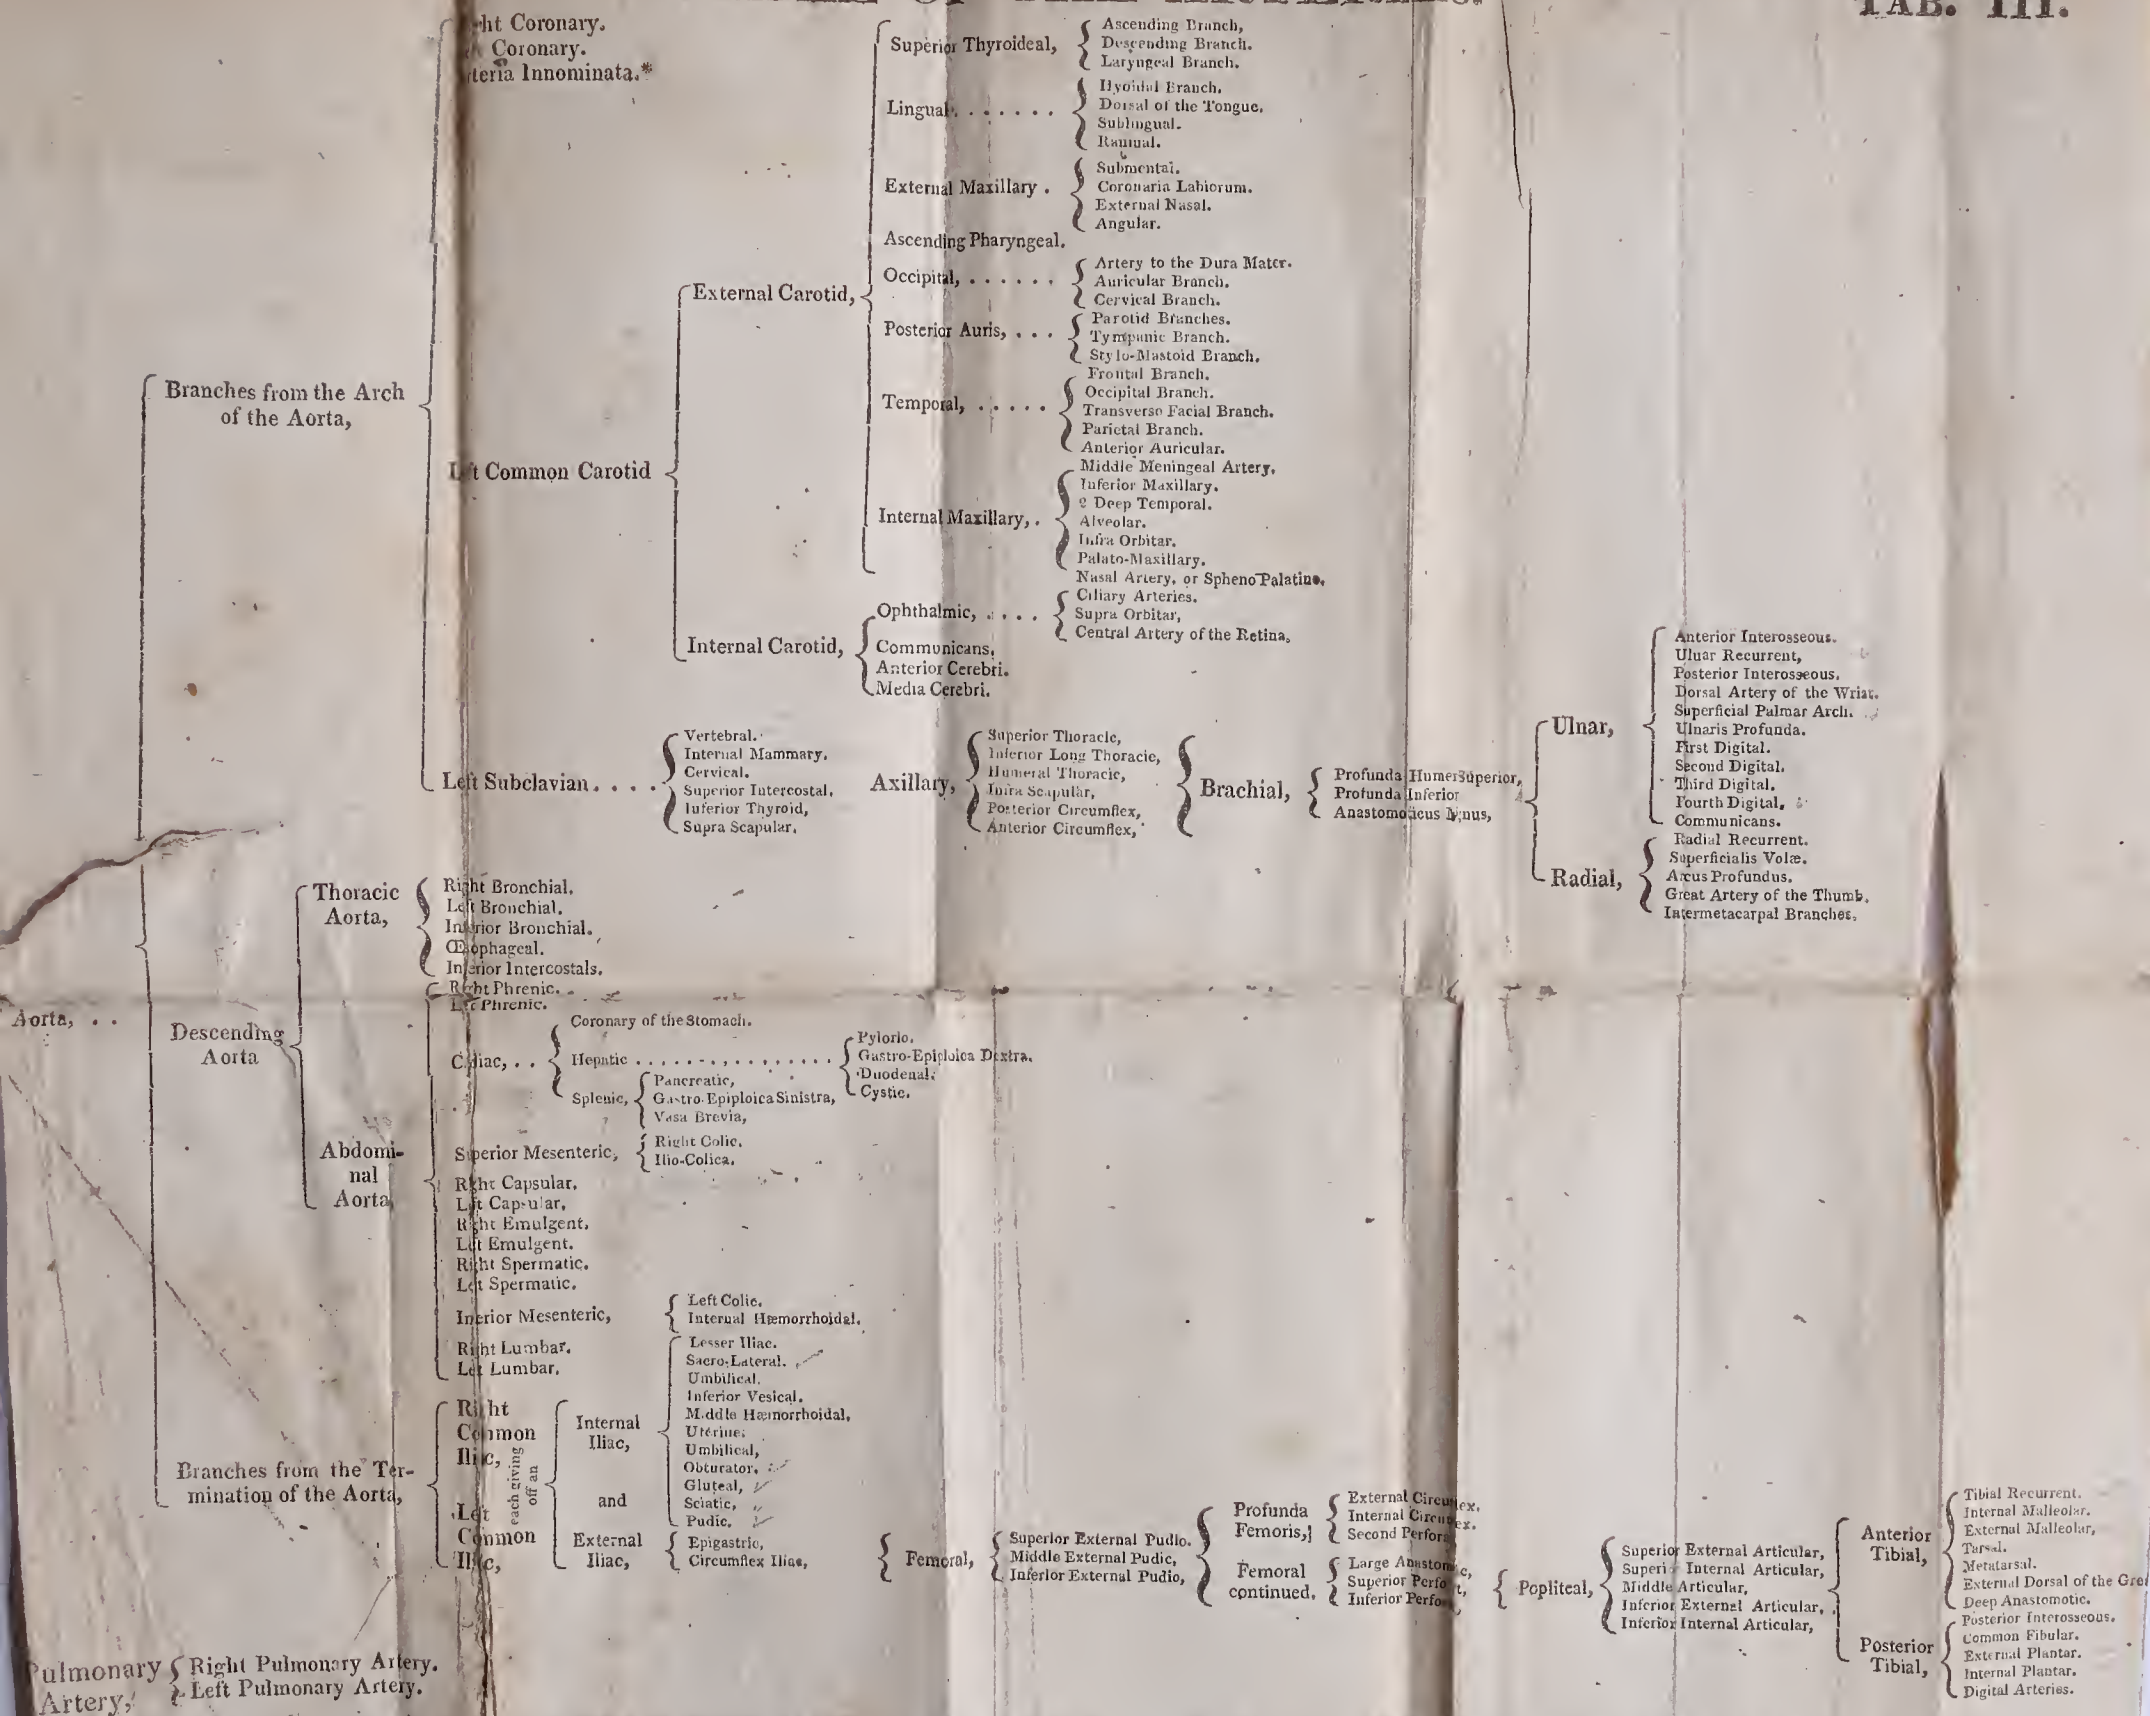 TAB. III.
Coronary.
Coronary.
Innominata.*
Branches from the Arch
of the Aorta,
Common Carotid
External Carotid,
Superior Thyroideal,
Ascending Branch,
Descending Branch.
Laryngeal Branch.
Lingual
Hyoidal Branch.
Dorsal of the Tongue.
Sublingual.
Ranual.
External Maxillary .
Submental.
Coronaria Labiorum.
External Nasal.
Angular.
Ascending Pharyngeal.
Occipital, . . . . . .
Artery to the Dura Mater.
Auricular Branch.
Cervical Branch.
Posterior Auris, . . .
Parotid Branches.
Tympanic Branch.
Stylo-Mastoid Branch.
Temporal, . . . . .
Frontal Branch.
Occipital Branch.
Transverse Facial Branch.
Parietal Branch.
Anterior Auricular.
Internal Maxillary, .
Middle Meningeal Artery.
Inferior Maxillary.
2 Deep Temporal.
Alveolar.
Infra Orbitar.
Palato-Maxillary.
Nasal Artery, or Spheno Palatine.
Internal Carotid,
Ophthalmic, . . . .
Ciliary Arteries.
Supra Orbitar,
Central Artery of the Retina.
Communicans.
Anterior Cerebri.
Media Cerebri.
Left Subclavian. . . .
Vertebral.
Internal Mammary.
Cervical.
Superior Intercostal,
Inferior Thyroid,
Supra Scapular.
Axillary,
Superior Thoracic,
Inferior Long Thoracic,
Humeral Thoracic,
Infra Scapular,
Posterior Circumflex,
Anterior Circumflex,
Brachial,
Profunda Humer Superior,
Profunda Inferior
Anastomoticus Minus,
Ulnar,
Anterior Interosseous.
Ulnar Recurrent,
Posterior Interosseous.
Dorsal Artery of the Wrist.
Superficial Palmar Arch.
Ulnaris Profunda.
First Digital.
Second Digital.
Third Digital.
Fourth Digital,
Communicans.
Radial,
Radial Recurrent.
Superficialis Volæ.
Arcus Profundus.
Great Artery of the Thumb.
Intermetacarpal Branches.
Aorta, . .
Descending
Aorta
Thoracic
Aorta,
Right Bronchial.
Left Bronchial.
Inferior Bronchial.
Œsophageal.
Inferior Intercostals.
Abdomi-
nal
Aorta
Right Phrenic.
Left Phrenic.
Cœliac, . .
Coronary of the Stomach.
Hepatic . . . . . . . . . . . . . . .
Pyloric.
Gastro-Epiploica Dextra.
Duodenal.
Cystic.
Splenic,
Pancreatic,
Gastro-Epiploica Sinistra,
Vasa Brevia,
Superior Mesenteric,
Right Colic.
Ilio-Colica.
Right Capsular.
Left Capsular,
Right Emulgent.
Left Emulgent.
Right Spermatic.
Left Spermatic.
Inferior Mesenteric,
Left Colic.
Internal Hæmorrhoidal.
Right Lumbar.
Left Lumbar.
Branches from the Ter-
mination of the Aorta,
Right
Common
Iliac,
Left
Common
Iliac,
each giving
off an
Internal
Iliac,
and
External
Iliac,
Lesser Iliac.
Sacro-Lateral.
Umbilical.
Inferior Vesical.
Middle Hæmorrhoidal,
Uterine.
Umbilical,
Obturator,
Gluteal,
Sciatic,
Pudic.
Epigastric,
Circumflex Iliac,
Femoral,
Superior External Pudic.
Middle External Pudic,
Inferior External Pudic,
Profunda
Femoris,
External
Internal
Second
Femoral
continued.
Large
Superior
Inferior
Popliteal,
Superior External Articular,
Superior Internal Articular,
Middle Articular,
Inferior External Articular,
Inferior Internal Articular,
Anterior
Tibial,
Tibial Recurrent.
Internal Malleolar.
External Malleolar,
Tarsal.
Metatarsal.
External Dorsal of the
Deep Anastomotic.
Posterior
Tibial,
Posterior Interosseous.
Common Fibular.
External Plantar.
Internal Plantar.
Digital Arteries.
Pulmonary
Artery,
Right Pulmonary Artery.
Left Pulmonary Artery.